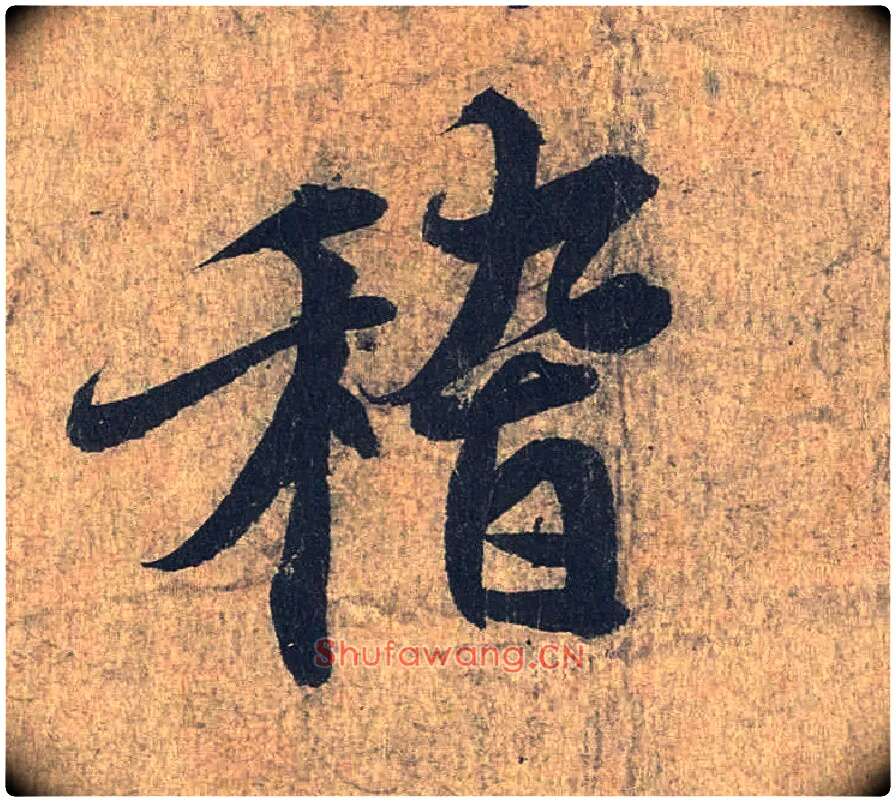 稽
Shufawang.CN